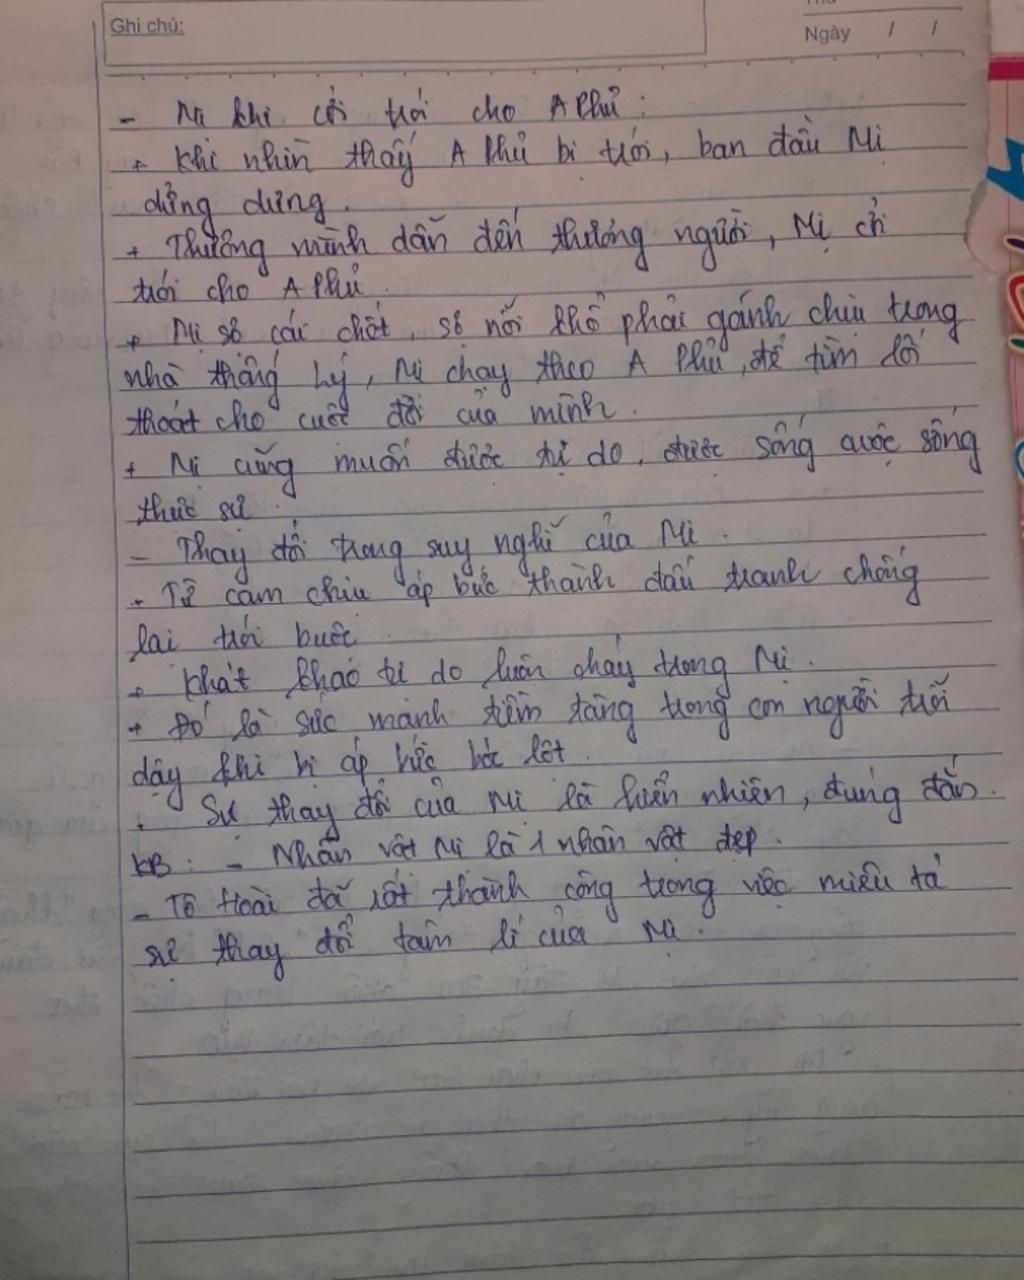 Ghi chú:
Ngày / /
- Mị khi cởi trói cho A Phủ:
+ Khi nhìn thấy A Phủ bị trói, ban đầu Mị
dửng dưng.
+ Thương mình dẫn đến thương người, Mị cởi
trói cho A Phủ.
+ Mị sợ cái chết, sợ nỗi khổ phải gánh chịu trong
nhà thống lý, Mị chạy theo A Phủ, để tìm lối
thoát cho cuộc đời của mình.
+ Mị cũng muốn được tự do, được sống cuộc sống
thực sự.
- Thay đổi trong suy nghĩ của Mị.
+ Từ cam chịu áp bức thành đấu tranh chống
lại trói buộc.
+ Khát khao tự do luôn cháy trong Mị.
+ Đó là sức mạnh tiềm tàng trong con người trỗi
dậy khi bị áp bức bóc lột.
. Sự thay đổi của Mị là hiển nhiên, đúng đắn.
KB: - Nhân vật Mị là 1 nhân vật đẹp.
- Tô Hoài đã rất thành công trong việc miêu tả
sự thay đổi tâm lí của Mị.